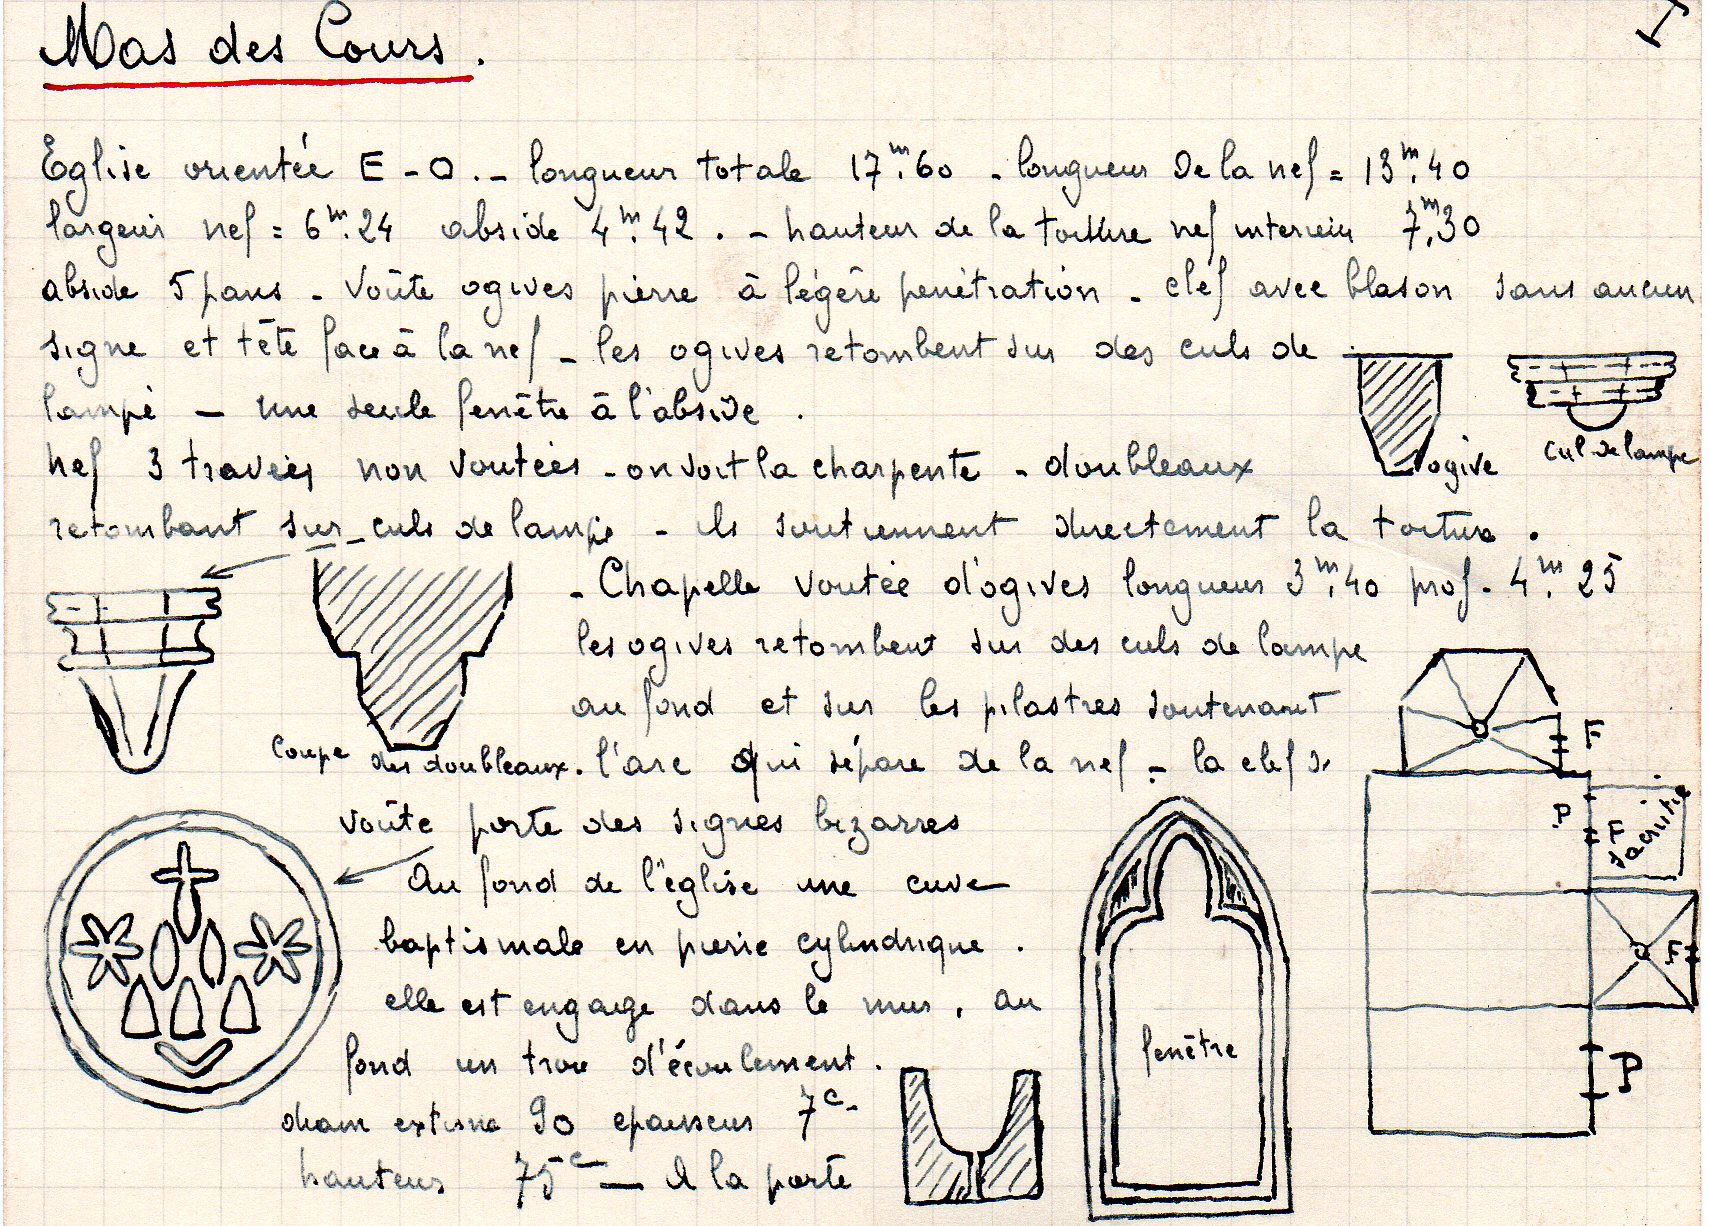 I
Mas des Cours.
Eglise orientée E-O. - longueur totale 17m.60 - longueur de la nef = 13m.40
largeur nef = 6m.24 abside 4m.42. - hauteur de la toiture nef interieur 7m.30
abside 5 pans - Voûte ogives pierre à légère penétration - clef avec blason sans aucun
signe et tête face à la nef - les ogives retombent sur des culs de
lampe - une seule fenêtre à l'abside.
ogive
cul de lampe
nef 3 travées non voutées - on voit la charpente - doubleaux
retombant sur culs de lampe - ils soutiennent directement la toiture.
- Chapelle voutée d'ogives longueur 3m.40 prof. 4m.25
les ogives retombent sur des culs de lampe
au fond et sur les pilastres soutenant
l'arc qui sépare de la nef - la clef de
coupe des doubleaux.
voûte porte des signes bizarres
Au fond de l'église une cuve
baptismale en pierre cylindrique.
elle est engagé dans le mur. au
fond un trou d'écoulement.
diam externe 90 epaisseur 7c.
hauteur 75c — A la porte
fenêtre
F
P
F
sacristie
F
P